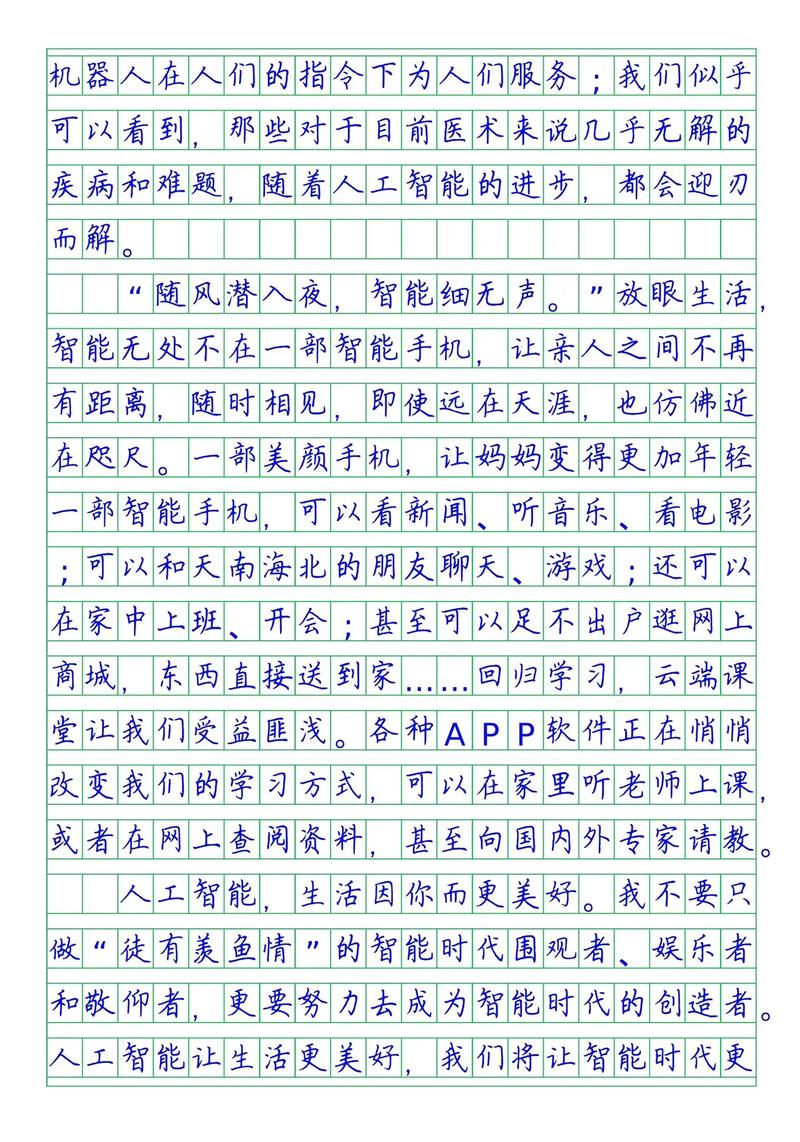 机器人在人们的指令下为人们服务；我们似乎
可以看到，那些对于目前医术来说几乎无解的
疾病和难题，随着人工智能的进步，都会迎刃
而解。
“随风潜入夜，智能细无声。”放眼生活，
智能无处不在一部智能手机，让亲人之间不再
有距离，随时相见，即使远在天涯，也仿佛近
在咫尺。一部美颜手机，让妈妈变得更加年轻
一部智能手机，可以看新闻、听音乐、看电影
；可以和天南海北的朋友聊天、游戏；还可以
在家中上班、开会；甚至可以足不出户逛网上
商城，东西直接送到家……回归学习，云端课
堂让我们受益匪浅。各种APP软件正在悄悄
改变我们的学习方式，可以在家里听老师上课，
或者在网上查阅资料，甚至向国内外专家请教。
人工智能，生活因你而更美好。我不要只
做“徒有羡鱼情”的智能时代围观者、娱乐者
和敬仰者，更要努力去成为智能时代的创造者。
人工智能让生活更美好，我们将让智能时代更